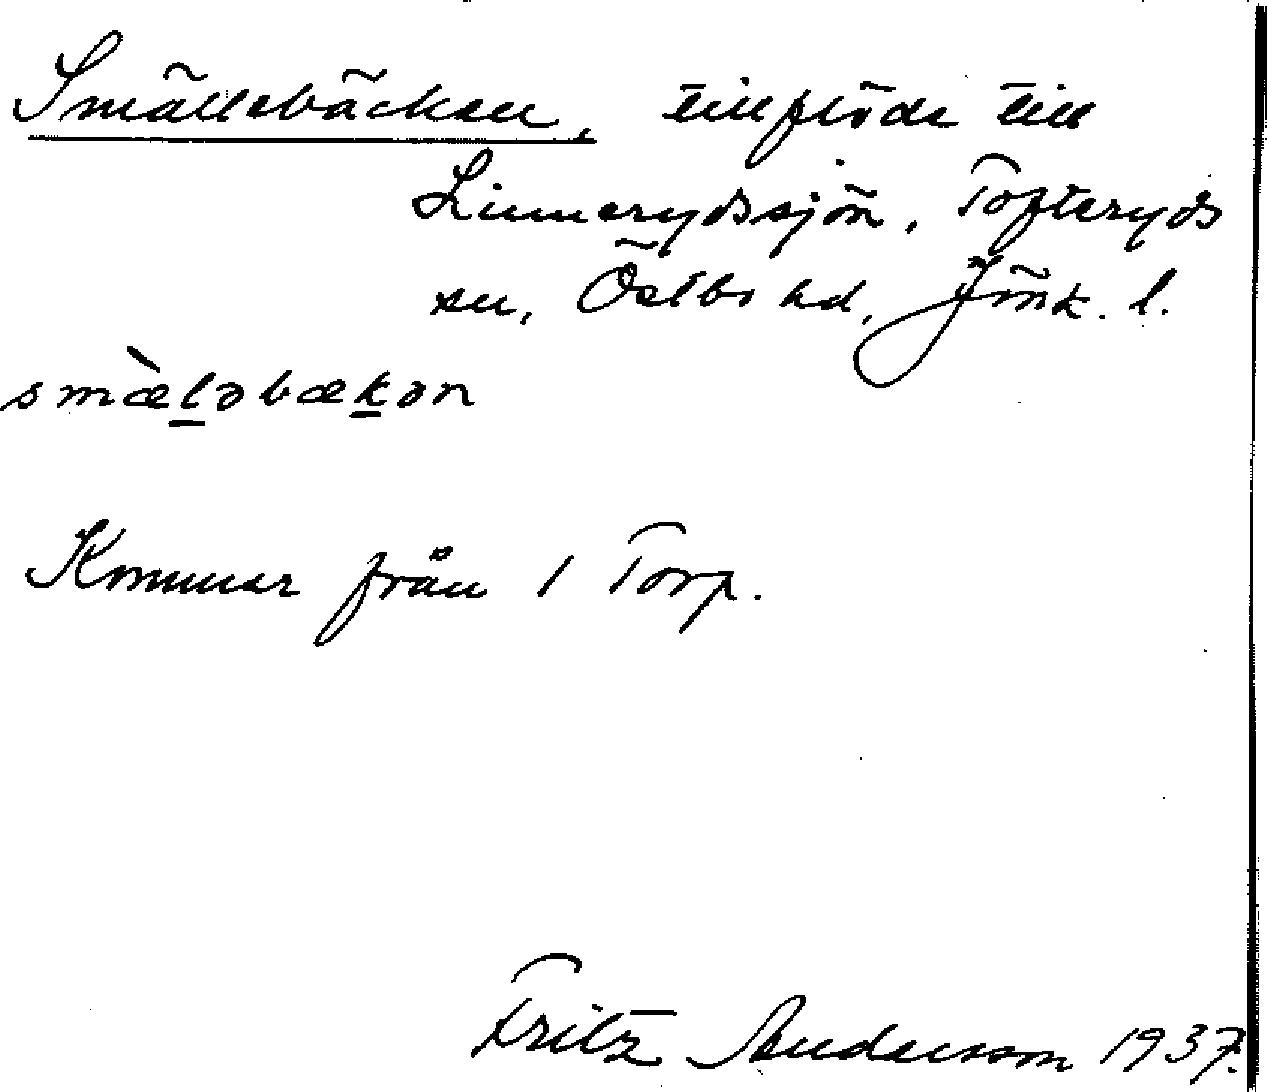 Smällebäcken, tillflöde till
Linnerydssjön, Tofteryds
sn, Östbo hd, Jönk. l.
smæ̀lǝbækǝn
Kommer från 1 Torp.
Fritz Anderson 1937.